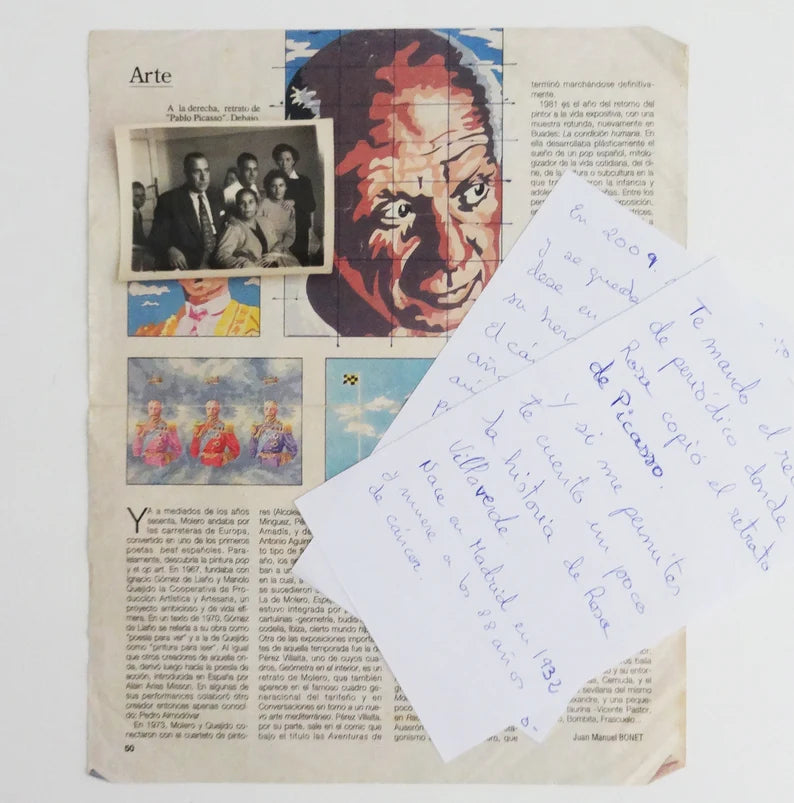 Arte
A la derecha, retrato de
"Pablo Picasso". Debajo,
terminó marchándose definitiva-
mente.
1981 es el año del retorno del
pintor a la vida expositiva, con una
muestra rotunda, nuevamente en
Buades: La condición humana. En
ella desarrollaba plásticamente el
sueño de un pop español, mitolo-
gizador de la vida cotidiana, del ci-
ne, de la
o subcultura en la
que
la infancia y
Entre los
En 2009
y se queda
dese en
su
El
años
Te mando el
de periódico donde
Rosa copió el retrato
de Picasso.
Y si me permites
te cuento un poco
la historia de Rosa
Villaverde
Nace en Madrid en 1932
y muere a los 88 años
de cáncer.
YA mediados de los años
sesenta, Molero andaba por
las carreteras de Europa,
convertido en uno de los primeros
poetas beat españoles. Para-
lelamente, descubría la pintura pop
y el op art. En 1967, fundaba con
Ignacio Gómez de Liaño y Manolo
Quejido la Cooperativa de Pro-
ducción Artística y Artesana, un
proyecto ambicioso y de vida efí-
mera. En un texto de 1970, Gómez
de Liaño se refería a su obra como
"poesía para ver" y a la de Quejido
como "pintura para leer". Al igual
que otros creadores de aquella on-
da, derivó luego hacia la poesía de
acción, introducida en España por
Alain Arias Misson. En algunas de
sus performances colaboró otro
creador entonces apenas conoci-
do: Pedro Almodóvar.
En 1973, Molero y Quejido co-
nectaron con el cuarteto de pinto-
50
res (Alcolea
Mínguez, Pé
Amadís, y d
Antonio Aguirr
to tipo de
año, los
ban a un
en la cual, a
se sucedieron
La de Molero, Espe
estuvo integrada por
cartulinas -geometría, budis
codelia, Ibiza, cierto mundo
Otra de las exposiciones importa
tes de aquella temporada fue la d
Pérez Villalta, uno de cuyos cua-
dros, Geómetra en el interior, es un
retrato de Molero, que también
aparece en el famoso cuadro ge-
neracional del tarifeño y en
Conversaciones en torno a un nue-
vo arte mediterráneo. Pérez Villalta,
por su parte, sale en el comic que
bajo el título las Aventuras de
gonismo
que
baila
y su entor-
Cernuda, y el
sevillana del mismo
y una peque-
taurina -Vicente Pastor,
Bombita, Frascuelo...
Juan Manuel BONET